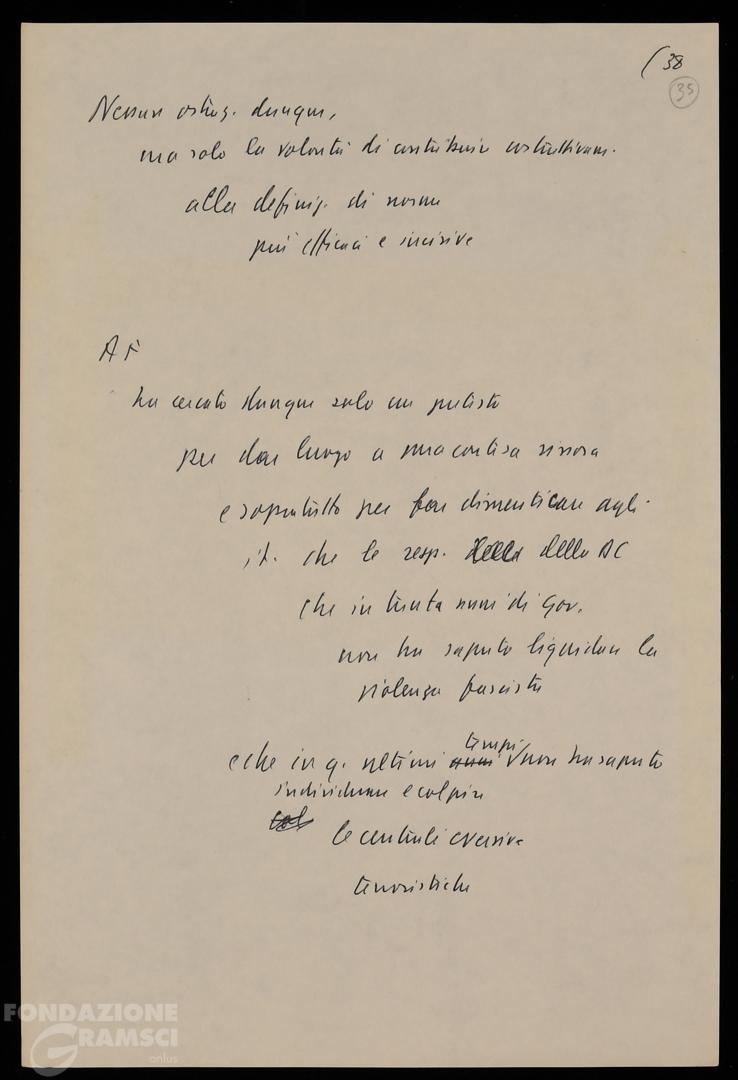 (38
35
Nessun ostruz. dunque,
ma solo la volontà di contribuire costruttivam.
alla definiz. di norme
più efficaci e incisive
AF
ha cercato dunque solo un pretesto
per dar luogo a una contesa rissosa
e sopratutto per far dimenticare agli
it. che le resp. della DC
che in trenta anni di Gov.
non ha saputo liquidare la
violenza fascista
e che in q. ultimi anni tempi non ha saputo
individuare e colpire
le centrali eversive
terroristiche
FONDAZIONE
GRAMSCI
onlus